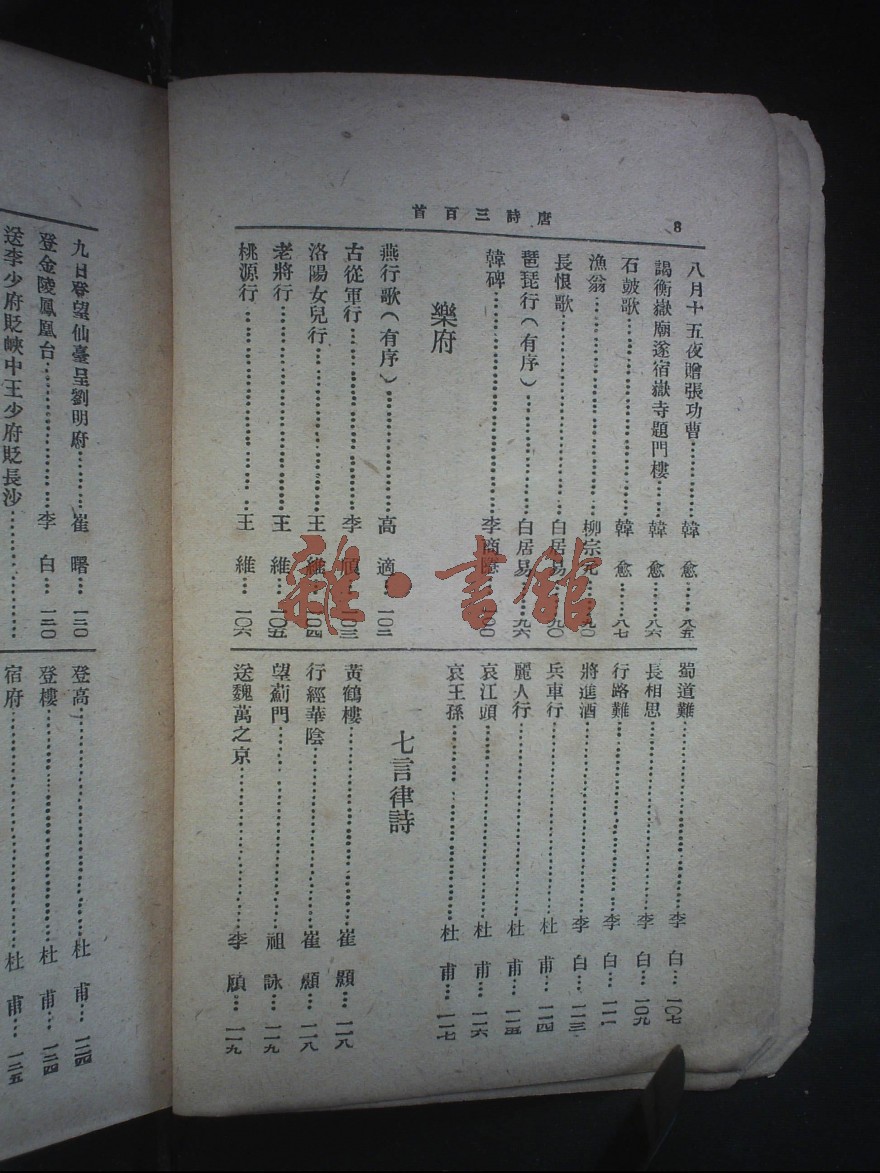 唐詩三百首
8
八月十五夜贈張功曹……韓愈……八五
謁衡嶽廟遂宿嶽寺題門樓……韓愈……八六
石皷歌……韓愈……八七
漁翁……柳宗元…九〇
長恨歌……白居易…九〇
琵琶行(有序)……白居易…九六
韓碑……李商隱…一〇〇
樂府
燕行歌(有序)……高適…一〇二
古從軍行……李頎…一〇三
洛陽女兒行……王維…一〇四
老將行……王維…一〇五
桃源行……王維…一〇六
蜀道難……李白…一〇七
長相思……李白…一〇九
行路難……李白…一一一
將進酒……李白…一一三
兵車行……杜甫…一一四
麗人行……杜甫…一一五
哀江頭……杜甫…一一六
哀王孫……杜甫…一一七
七言律詩
黃鶴樓……崔顥…一一八
行經華陰……崔顥…一一八
望薊門……祖詠…一一九
送魏萬之京……李頎…一一九
九日登望仙臺呈劉明府……崔曙…一二〇
登金陵鳳凰台……李白…一二〇
送李少府貶峽中王少府貶長沙……
登高……杜甫…一二四
登樓……杜甫…一二四
宿府……杜甫…一二五
雜·書館